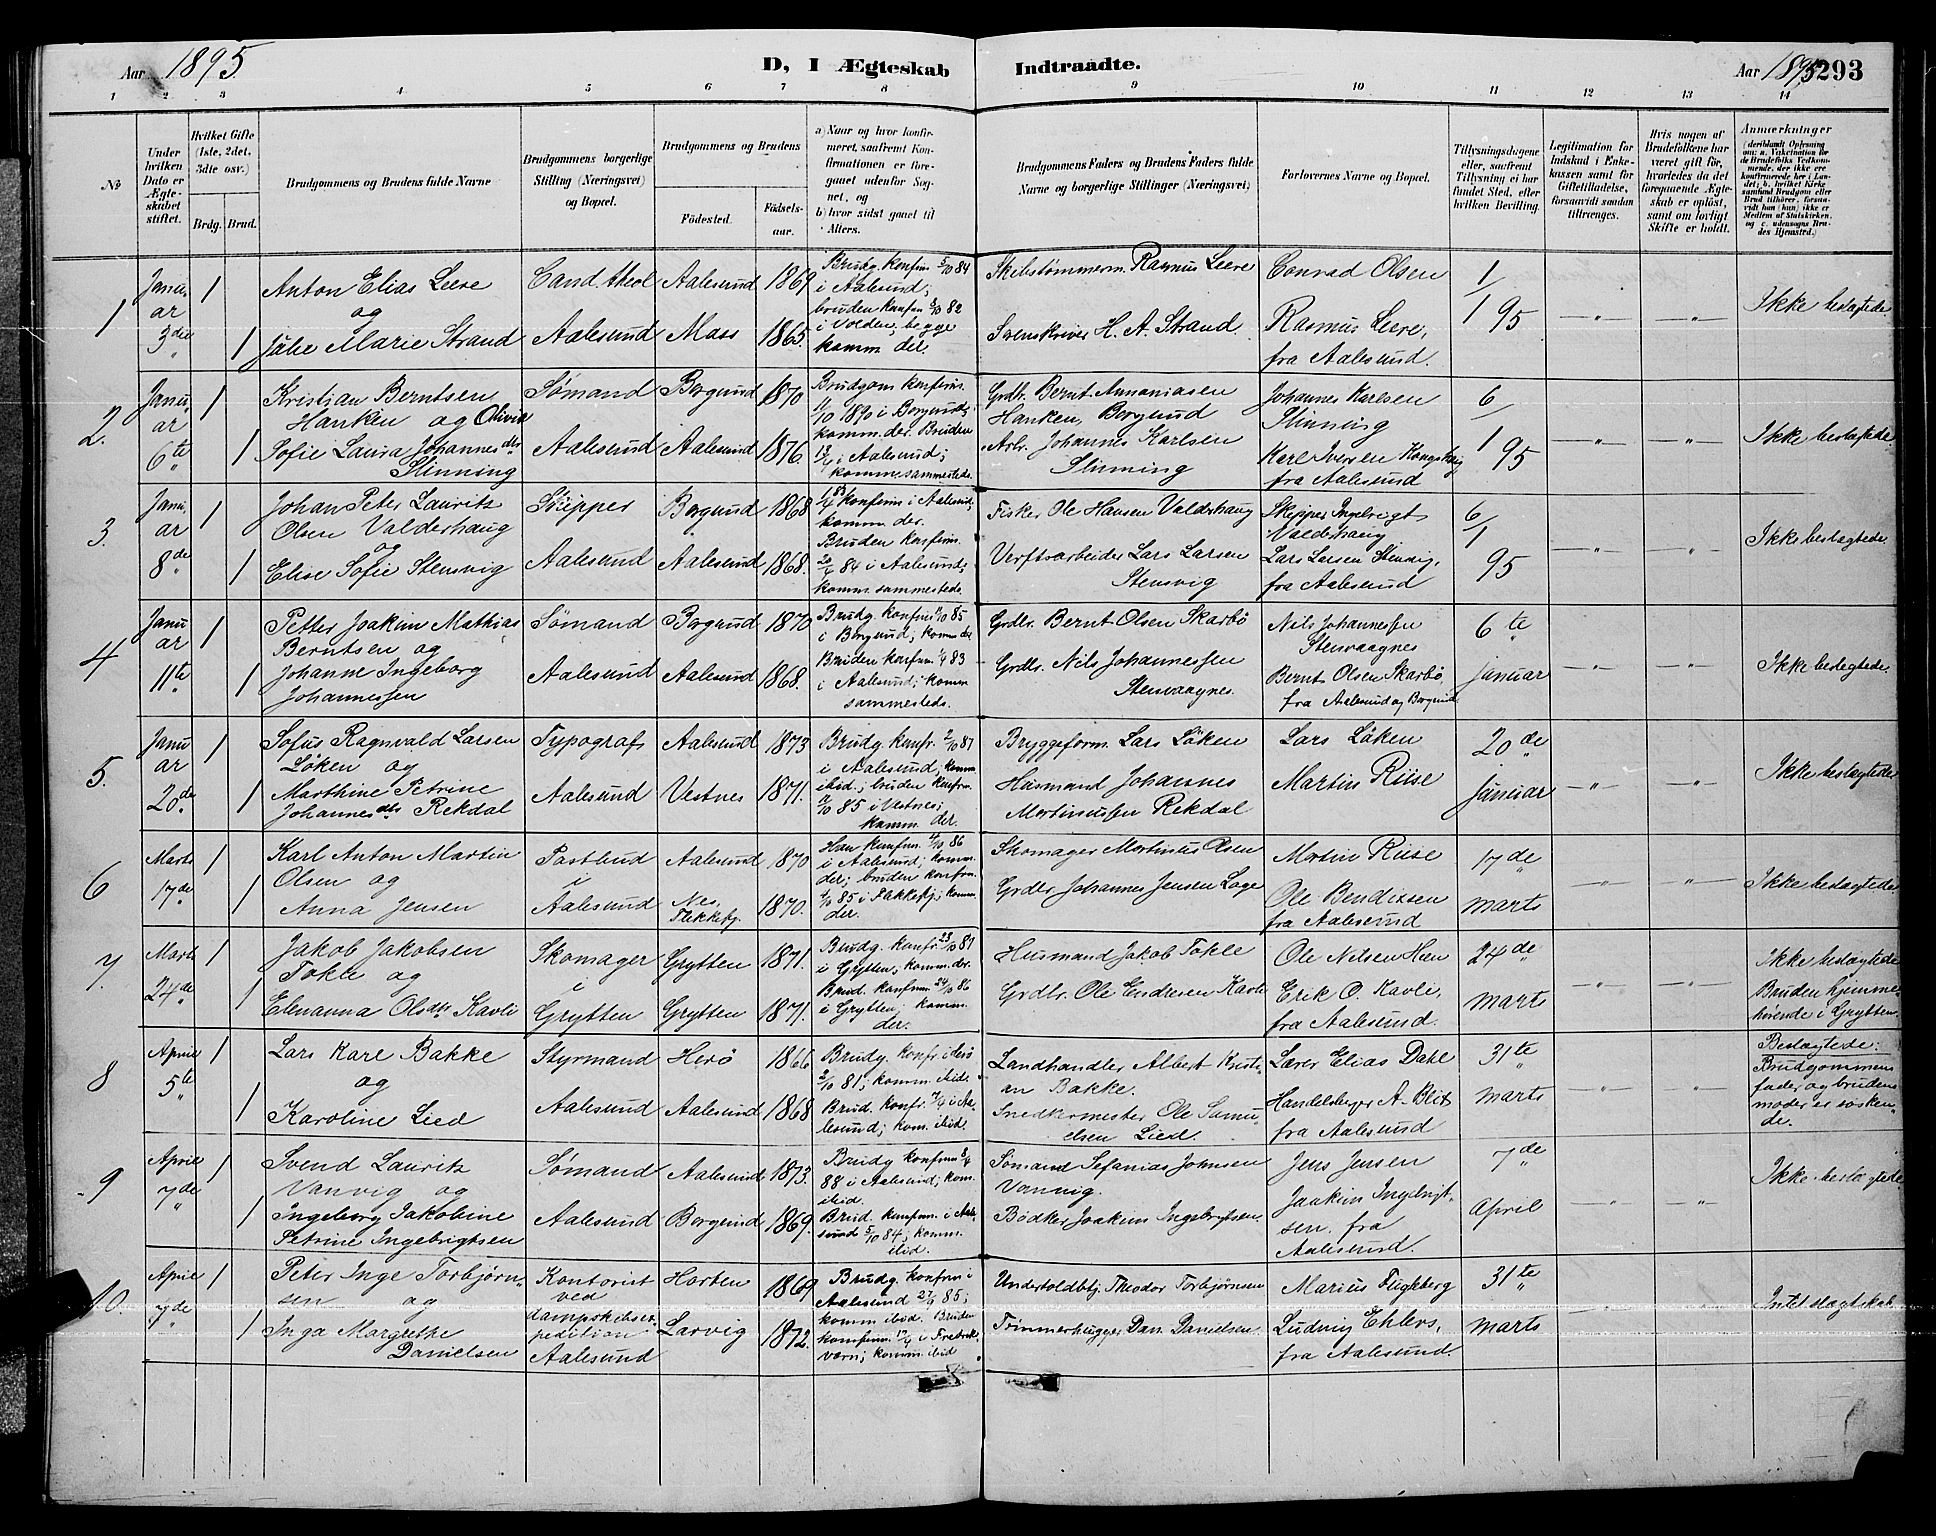 Aar 1895
D, I Ægteskab Indtraadte.
Aar 1895
293
1 2 3 4 5 6 7 8 9 10 11 12 13 14
No
Under hvilken Dato er Ægteskabet stiftet.
Hvilket Gifte (1ste, 2det, 3dte osv.)
Brdg. Brud.
Brudgommens og Brudens fulde Navne
Brudgommens borgerlige Stilling (Næringsvei) og Bopæl.
Brudgommens og Brudens
Fødested.
Fødselsaar.
a) Naar og hvor konfirmeret, saafremt Konfirmationen er foregaaet udenfor Sognet, og
b) hvor sidst gaaet til Alters.
Brudgommens Faders og Brudens Faders fulde Navne og borgerlige Stillinger (Næringsvei)
Forlovernes Navne og Bopæl.
Tillysningsdagene eller, saafremt Tillysning ei har fundet Sted, efter hvilken Bevilling.
Legitimation for Indskud i Enkekassen samt for Giftetilladelse, forsaavidt saadan tiltrænges.
Hvis nogen af Brudefolkene har været gift før, hvorledes da det foregaaende Ægteskab er opløst, samt om lovligt Skifte er holdt.
Anmærkninger
1 Januar 3die 1 1
Anton Elias Leere
og
Julie Marie Strand
Cand. theol
Aalesund
Aalesund 1869
1865
Brudg. konfirm. 5/10 84
i Aalesund;
bruden konfirm
i Volden, begge
komm. der.
Skibstømmerm. Rasmus Leere
H. A. Strand
Conrad Olsen
Rasmus Leere,
fra Aalesund.
1/1 95
Ikke beslægtede
2. Januar 6te 1 1
Kristian Berntsen
Hanken og Olivia
Sofie Laura Johannesdtr
Slinning
Sømand
Aalesund
Borgund 1870
Aalesund 1876.
Brudgom konfirm.
1890 i Borgund;
komm. der. Bruden
i Aalesund;
komm. sammesteds.
Grdbr. Bernt Annaniasen
Hanken, Borgund
Arb. Johannes Karlsen
Slinning
Johannes Karlsen
Slinning
Karl Iversen
fra Aalesund
6/1 95
Ikke beslægtede
3. Januar 8de 1 1
Johan Peter Lauritz
Olsen Valderhaug
og
Elise Sofie Stensvig
Skipper
Aalesund
Borgund 1868
Aalesund 1868.
konfirm i Aalesund,
komm. der.
Bruden konfirm.
84 i Aalesund;
komm. sammesteds.
Fisker Ole Hansen Valderhaug
Verftsarbeider Lars Larsen
Stensvig
Skipper Ingebrigt
Valderhaug
Lars Larsen Stensvig,
fra Aalesund
6/1 95
Ikke beslægtede
4 Januar 11te 1 1
Petter Joakim Mathias
Berntsen og
Johanne Ingeborg
Johannessen
Sømand
Aalesund
Borgund 1870
Aalesund 1868.
Brudg. konfirm. 85
i Borgund; komm. der
Bruden konfirm. 83
i Aalesund; komm
sammesteds.
Grdbr. Bernt Olsen Skarbø
Grdbr. Nils Johannessen
Stensvaagnes.
Nils Johannessen
Stensvaagnes
Bernt Olsen Skarbø,
fra Aalesund og Borgund
6te januar
Ikke beslegtede
5. Januar 20de 1 1
Sofus Ragnvald Larsen
Løken og
Marthine Petrine
Johannesdtr Rekdal
Typograf
Aalesund
Aalesund 1873
Vestnes 1871.
Brudg. konfr. 2/10 87
i Aalesund; komm
ibid.; bruden konfrm.
85 i Vestnes;
komm. der.
Bryggeform. Lars Løken
Husmand Johannes
Martinussen Rekdal
Lars Løken
Martin Riise
20de Januar
Ikke beslægtede
6 Marts 17de 1 1
Karl Anton Martin
Olsen og
Anna Jensen
Postbud
i
Aalesund
Aalesund 1870
Nes Flekkefj. 1870.
Han konfirm. 86
i Aalesund; komm.
der; bruden konfrm.
85 i Flekkefj; komm.
der.
Skomager Martinus Olsen
Grdbr. Johannes Jensen Loge
Martin Riise
Ole Bendixsen
fra Aalesund
17de marts
Ikke beslægtede
7. Marts 24de 1 1
Jakob Jakobsen
Tokle og
Elenanna Olsdtr Kavli
Skomager
i
Grytten
Grytten 1871.
Grytten 1871.
Brudg. konfr. 23/10 87
i Grytten; komm. der.
Brud. konfrm. 86
i Grytten; komm.
der.
Husmand Jakob Tokle
Grdbr. Ole Endresen Kavli
Ole Nilsen Heen
Erik O. Kavli,
fra Aalesund.
24de marts
Ikke beslægtede
Bruden hjemme-
hørende i Grytten.
8 April 5te 1 1
Lars Kare Bakke
og
Karoline Lied
Styrmand
Aalesund
Herø 1866
Aalesund 1868
Brudg. konfr. i Herø
2/10 81; komm. ibid.
Brud. konfr. i Aa-
lesund; kom. ibid.
Landhandler Albert Kristi-
an Bakke.
Snedkermester Ole Samu-
elsen Lied.
Lærer Elias Dahl
A. Blit
fra Aalesund
31te marts
Beslægtede:
Brudgommens
fader og brudens
moder er søsken-
de.
9 April 7de 1 1
Svend Lauritz
Vanvig og
Ingeborg Jakobine
Petrine Ingebrigtsen
Sømand
Aalesund
Aalesund 1873.
Borgund 1869.
Brudg konfrm
88 i Aalesund; kom.
ibid.
Brud. konfrm. i Aale-
sund 5/10 84; komm.
ibid.
Sømand Sefanias Johnsen
Vanvig.
Bødker Joakim Ingebrigtsen.
Jens Jensen
Joakim Ingebrigt-
sen, fra
Aalesund.
7de April
Ikke beslægtede
10. April 7de 1 1
Peter Inge Torbjørn-
sen og
Inga Margrethe
Danielsen
Kontorist
ved
dampskibsex-
pedition
Aalesund
Horten 1869
Larvig 1872.
Brudg. konfrm i
Aalesund 27/9 85;
komm ibid. Bruden
konfirm. i Fredriks-
værn; komm. ibid
Undertoldbtj. Theodor Torbjørnsen
Tømmerhugger Dan. Danielsen
Marius Fugleberg
Ludvig Ehlers,
fra Aalesund.
31te marts
Intet slægtskab